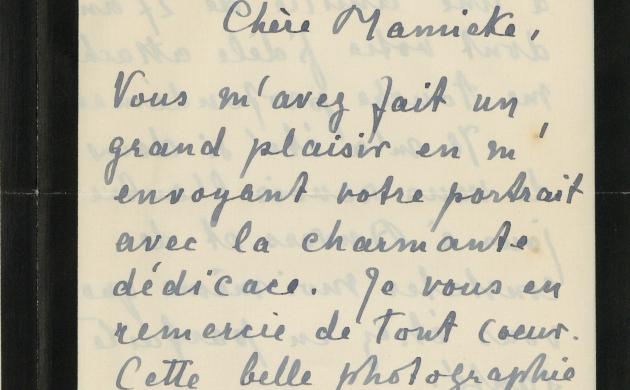 Chère Mamicke,
Vous m'avez fait un
grand plaisir en m'
envoyant votre portrait
avec la charmante
dédicace. Je vous en
remercie de tout coeur.
Cette belle photographie